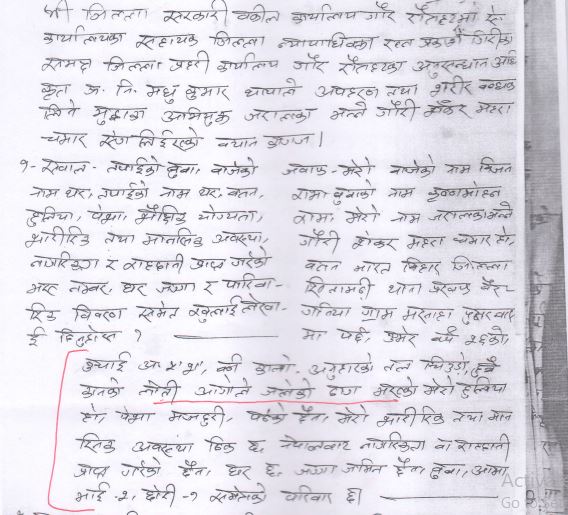 श्री जिल्ला सरकारी वकील कार्यालय गौर रौतहटमा सो
कार्यालयका सहायक जिल्ला न्यायाधिवक्ता
समक्ष जिल्ला प्रहरी कार्यालय गौर रौतहटका अनुसन्धान अधि
कृत प्र. नि. मधु कुमार थापाले अपहरण तथा शरीर बन्धक
लिने मुद्दाका अभियुक्त जरालका भन्ने गौरी शंकर महरा
चमार संग लिईएको बयान कागज।
१- सवाल- तपाईको बुवा, बाजेको जवाफ- मेरो बाजेको नाम
नाम थर, तपाईको नाम थर, वतन, रामा बुवाको नाम कृष्णमोहन
हुलिया, पेशा, शैक्षिक योग्यता, रामा, मेरो नाम जरालका भन्ने
शारीरिक तथा मानसिक अवस्था, गौरी शंकर महरा चमार हो,
नागरिकता र राहदानी प्राप्त गरेको वतन भारत बिहार जिल्ला
भए नम्बर, घर जग्गा र पारिवा- सितामढी थाना
रिक विवरण समेत खुलाई लेखा- गाम
ई दिनुहोस ? मा पर्छ, उमेर वर्ष
उचाई अ. ५'५", वर्ण कालो, अनुहारको तल चिउडो, दुबै
कानको लोती आगोले जलेको दाग भएको मेरो हुलिया
हो, पेशा मजदुरी, पढेको छैन, मेरो शारीरिक तथा मान
सिक अवस्था ठिक छ, नेपालबाट नागरिकता वा राहदानी
प्राप्त गरेको छैन, घर छ, जग्गा जमिन छैन, बुवा, आमा,
भाई २, छोरी-१ समेतको परिवार छ।